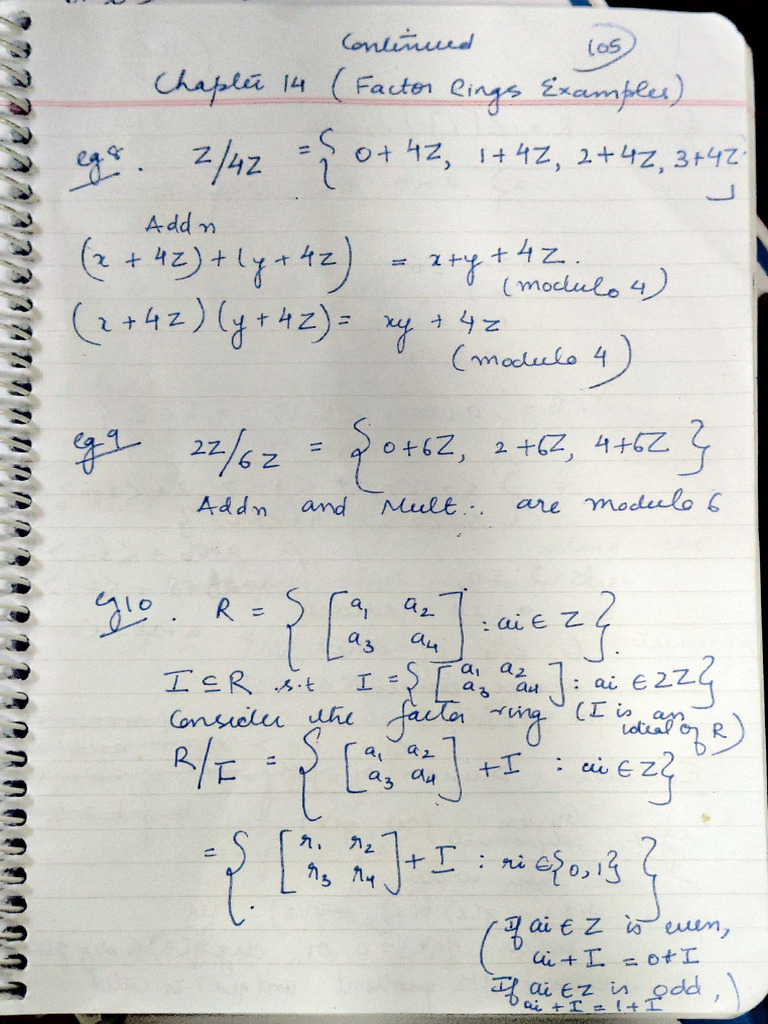 Continued 105
Chapter 14 ( Factor Rings Examples)
eg 8. Z/4Z = { 0 + 4Z, 1 + 4Z, 2 + 4Z, 3 + 4Z }
Addn
(x + 4Z) + (y + 4Z) = x+y + 4Z.
(modulo 4)
(x + 4Z) (y + 4Z) = xy + 4Z
(modulo 4)
eg 9 2Z/6Z = { 0+6Z, 2+6Z, 4+6Z }
Addn and Mult.. are modulo 6
eg 10. R = { [ a₁ a₂
a₃ a₄ ] : ai ∈ Z }.
I ⊆ R s.t I = { [ a₁ a₂
a₃ a₄ ] : ai ∈ 2Z }
Consider the factor ring (I is an
ideal of R)
R/I = { [ a₁ a₂
a₃ a₄ ] + I : ai ∈ Z }
= { [ r₁ r₂
r₃ r₄ ] + I : ri ∈ {0,1} }
(If ai ∈ Z is even,
ai + I = 0+I
If ai ∈ Z is odd,
ai + I = 1+I)